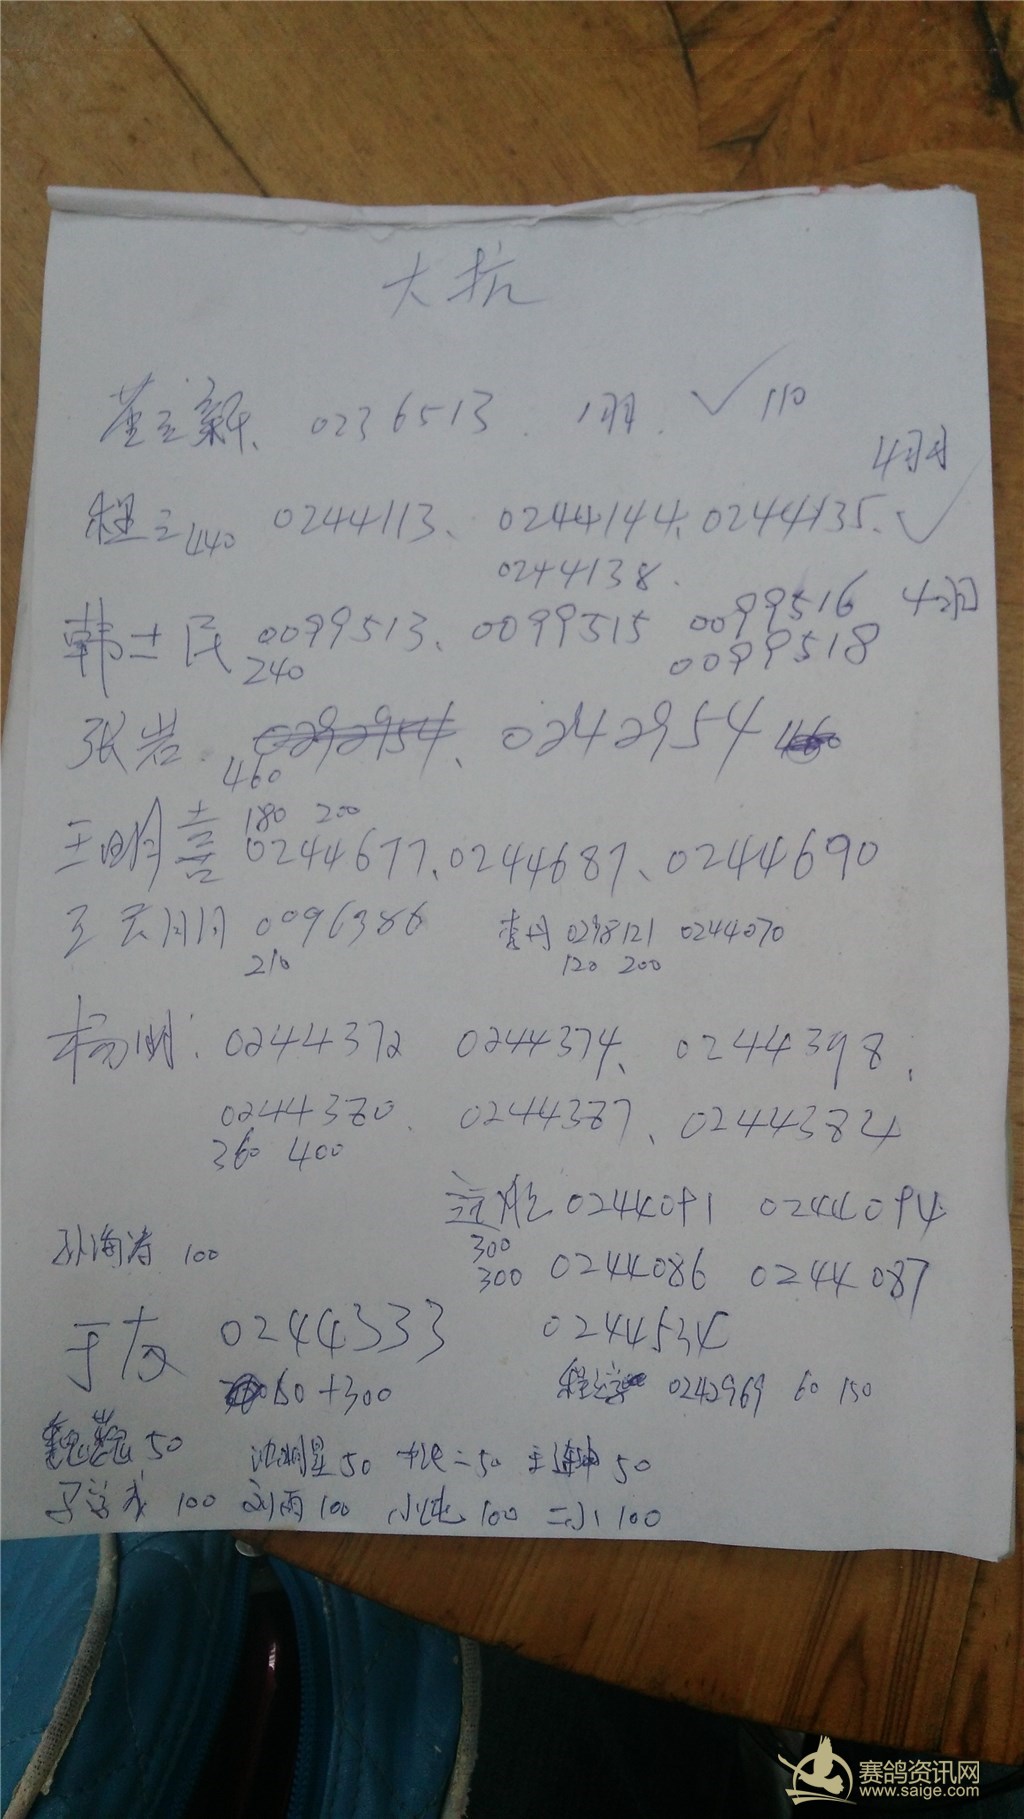 大抗
董立新、 0236513. 1羽. ✓ 110
4羽
程三 440 0244113、 0244144、0244135、✓
0244138.
韩士民 0099513、0099515 0099516 4羽
240 0099518
张岩. 0242954
460
180 200
王明喜 0244677、0244687、0244690
王天明 0096386 李丹 0298121 0244070
210 120 200
杨明: 0244372 0244374、 0244398、
0244380、 0244387、 0244384
360 400
0244091 0244094
孙海涛 100 300
300 0244086 0244087
于友 0244333 0244534
60+300 0242969 60 150
魏巍 50 沈明星 50 50 50
100 刘雨 100 小屯 100 二小 100
赛鸽资讯网
www.saige.com